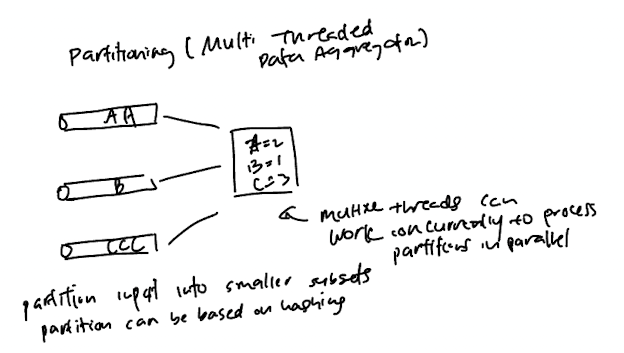 Partitioning ( Multi Threaded
Data Aggregator)
AA
A=2
B=1
C=3
B
CCC
threads can
work concurrently to process
partitions in parallel
partition input into smaller subsets
partition can be based on hashing